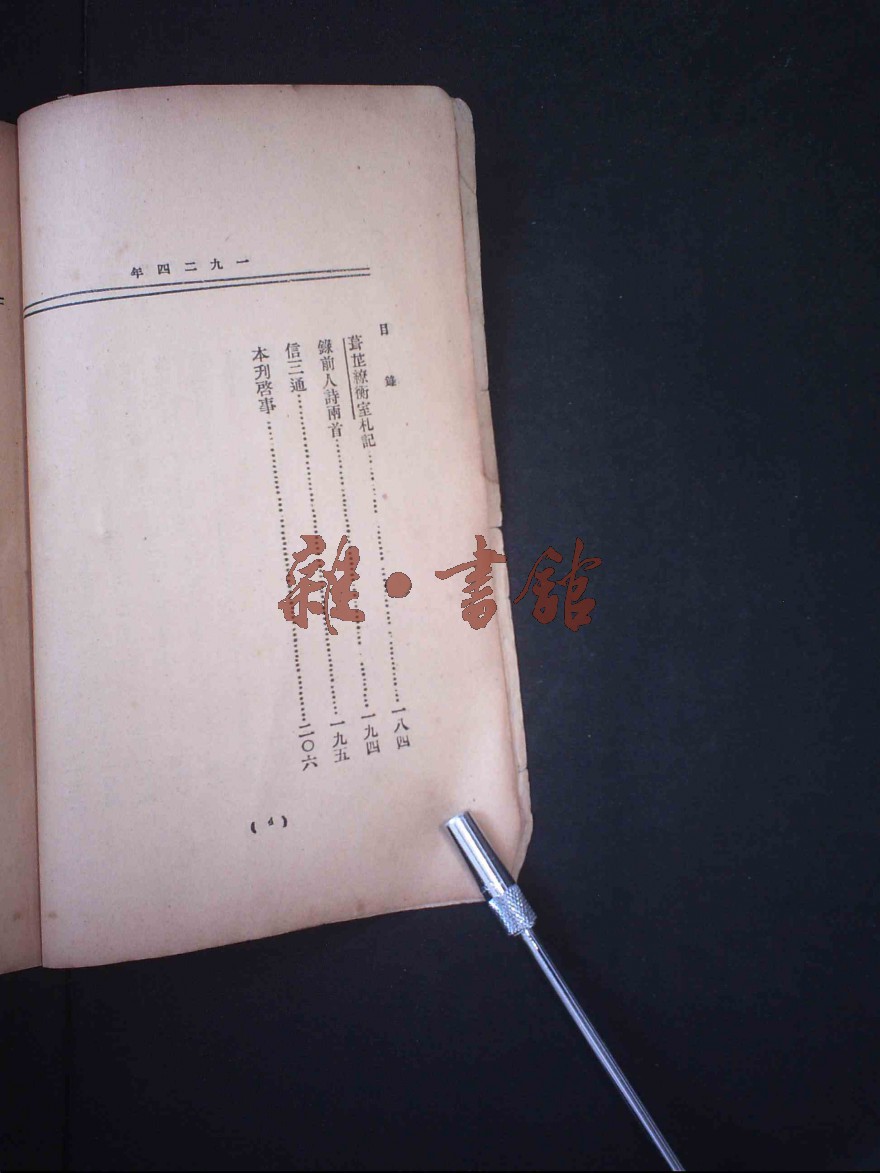 一九二四年
目錄
葺芷繚衡室札記……一八四
錄前人詩兩首……一九四
信三通……一九五
本刋啓事……二〇六
雜·書館